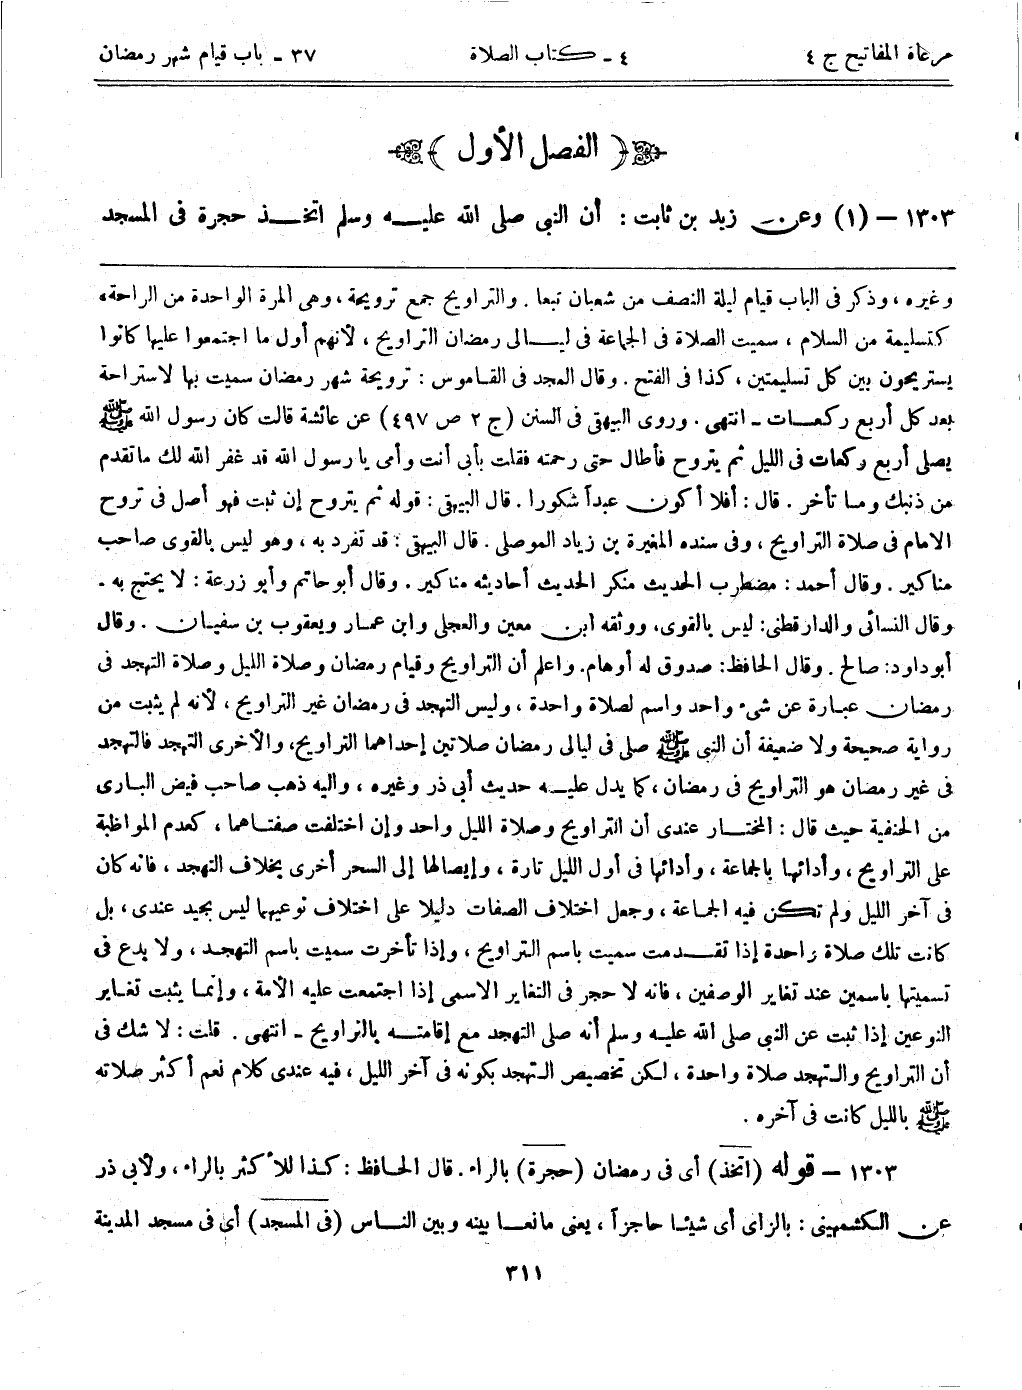 مرعاة المفاتيح ج ٤
٤ - كتاب الصلاة
٣٧ - باب قيام شهر رمضان
﴿ الفصل الأول ﴾
١٣٠٣ - (١) وعن زيد بن ثابت : أن النبى صلى الله عليه وسلم اتخذ حجرة فى المسجد
وغيره ، وذكر فى الباب قيام ليلة النصف من شعبان تبعا . والتراويح جمع ترويحة ، وهى المرة الواحدة من الراحة ،
كتسليمة من السلام ، سميت الصلاة فى الجماعة فى ليالى رمضان التراويح ، لأنهم أول ما اجتمعوا عليها كانوا
يستريحون بين كل تسليمتين ، كذا فى الفتح . وقال المجد فى القاموس : ترويحة شهر رمضان سميت بها لاستراحة
بعد كل أربع ركعات - انتهى . وروى البيهقى فى السنن (ج ٢ ص ٤٩٧) عن عائشة قالت كان رسول الله ﷺ
يصلى أربع ركعات فى الليل ثم يتروح فأطال حتى رحمته فقلت بأبى أنت وأمى يا رسول الله قد غفر الله لك ما تقدم
من ذنبك وما تأخر . قال : أفلا أكون عبداً شكورا . قال البيهقى : قوله ثم يتروح إن ثبت فهو أصل فى تروح
الامام فى صلاة التراويح ، وفى سنده المغيرة بن زياد الموصلى . قال البيهقى : قد تفرد به ، وهو ليس بالقوى صاحب
مناكير . وقال أحمد : مضطرب الحديث منكر الحديث أحاديثه مناكير . وقال أبو حاتم وأبو زرعة : لا يحتج به -
وقال النسائى والدارقطنى : ليس بالقوى ، ووثقه ابن معين والعجلى وابن عمار ويعقوب بن سفيان . وقال
أبو داود : صالح . وقال الحافظ : صدوق له أوهام . واعلم أن التراويح وقيام رمضان وصلاة الليل وصلاة التهجد فى
رمضان عبارة عن شىء واحد واسم لصلاة واحدة ، وليس التهجد فى رمضان غير التراويح ، لأنه لم يثبت من
رواية صحيحة ولا ضعيفة أن النبى ﷺ صلى فى ليالى رمضان صلاتين إحداهما التراويح ، والأخرى التهجد فالتهجد
فى غير رمضان هو التراويح فى رمضان ، كما يدل عليه حديث أبى ذر وغيره ، واليه ذهب صاحب فيض البارى
من الحنفية حيث قال : المختار عندى أن التراويح وصلاة الليل واحد وإن اختلفت صفتاهما ، كعدم المواظبة
على التراويح ، وأدائها بالجماعة ، وأدائها فى أول الليل تارة ، وإيصالها إلى السحر أخرى بخلاف التهجد ، فانه كان
فى آخر الليل ولم تكن فيه الجماعة ، وجعل اختلاف الصفات دليلا على اختلاف نوعيهما ليس بجيد عندى ، بل
كانت تلك صلاة واحدة إذا تقدمت سميت باسم التراويح ، وإذا تأخرت سميت باسم التهجد ، ولا بدع فى
تسميتها باسمين عند تغاير الوصفين ، فانه لا حجر فى التغاير الاسمى إذا اجتمعت عليه الأمة ، وإنما يثبت تغاير
النوعين إذا ثبت عن النبى صلى الله عليه وسلم أنه صلى التهجد مع إقامته بالتراويح - انتهى . قلت : لا شك فى
أن التراويح والتهجد صلاة واحدة ، لكن تخصيص التهجد بكونه فى آخر الليل ، فيه عندى كلام نعم أكثر صلاته
ﷺ بالليل كانت فى آخره .
١٣٠٣ - قوله (اتخذ) أى فى رمضان (حجرة) بالراء . قال الحافظ : كذا للأكثر بالراء ، ولأبى ذر
عن الكشمهينى : بالزاى أى شيئا حاجزاً ، يعنى مانعا بينه وبين الناس (فى المسجد) أى فى مسجد المدينة
٣١١